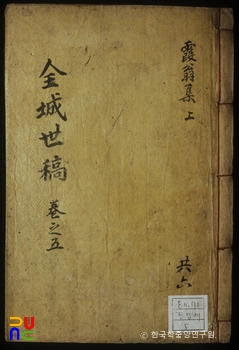 霞翁集 上
全城世稿 卷之五
共六
한국학중앙연구원